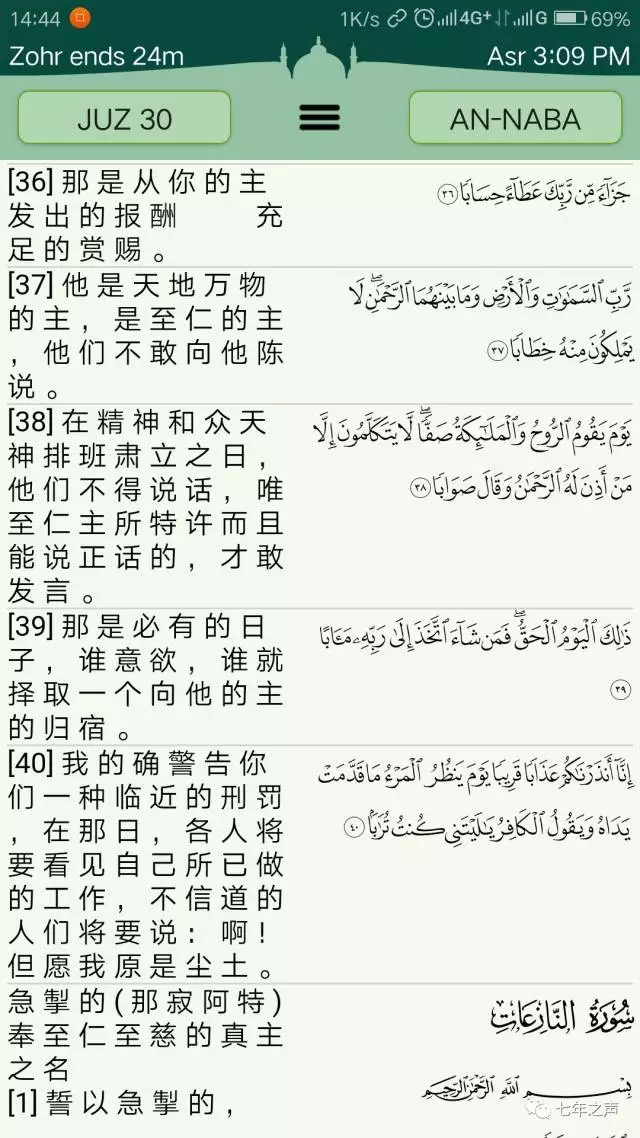 14:44 1K/s 4G+ G 69%
Zohr ends 24m Asr 3:09 PM
JUZ 30 AN-NABA
[36]那是从你的主
发出的报酬 充
足的赏赐。
جَزَآءً مِّن رَّبِّكَ عَطَآءً حِسَابًا ٣٦
[37]他是天地万物
的主，是至仁的主
，他们不敢向他陈
说。
رَّبِّ ٱلسَّمَٰوَٰتِ وَٱلْأَرْضِ وَمَا بَيْنَهُمَا ٱلرَّحْمَٰنِۖ لَا
يَمْلِكُونَ مِنْهُ خِطَابًا ٣٧
[38]在精神和众天
神排班肃立之日，
他们不得说话，唯
至仁主所特许而且
能说正话的，才敢
发言。
يَوْمَ يَقُومُ ٱلرُّوحُ وَٱلْمَلَٰٓئِكَةُ صَفًّاۖ لَّا يَتَكَلَّمُونَ إِلَّا
مَنْ أَذِنَ لَهُ ٱلرَّحْمَٰنُ وَقَالَ صَوَابًا ٣٨
[39]那是必有的日
子，谁意欲，谁就
择取一个向他的主
的归宿。
ذَٰلِكَ ٱلْيَوْمُ ٱلْحَقُّۖ فَمَن شَآءَ ٱتَّخَذَ إِلَىٰ رَبِّهِۦ مَـَٔابًا
٣٩
[40]我的确警告你
们一种临近的刑罚
，在那日，各人将
要看见自己所已做
的工作，不信道的
人们将要说：啊！
但愿我原是尘土。
إِنَّآ أَنذَرْنَٰكُمْ عَذَابًا قَرِيبًا يَوْمَ يَنظُرُ ٱلْمَرْءُ مَا قَدَّمَتْ
يَدَاهُ وَيَقُولُ ٱلْكَافِرُ يَٰلَيْتَنِى كُنتُ تُرَٰبًۢا ٤٠
急掣的(那寂阿特)
奉至仁至慈的真主
之名
[1]誓以急掣的，
سُورَةُ النَّازِعَاتِ
بِسْمِ ٱللَّهِ ٱلرَّحْمَٰنِ ٱلرَّحِيمِ
七年之声